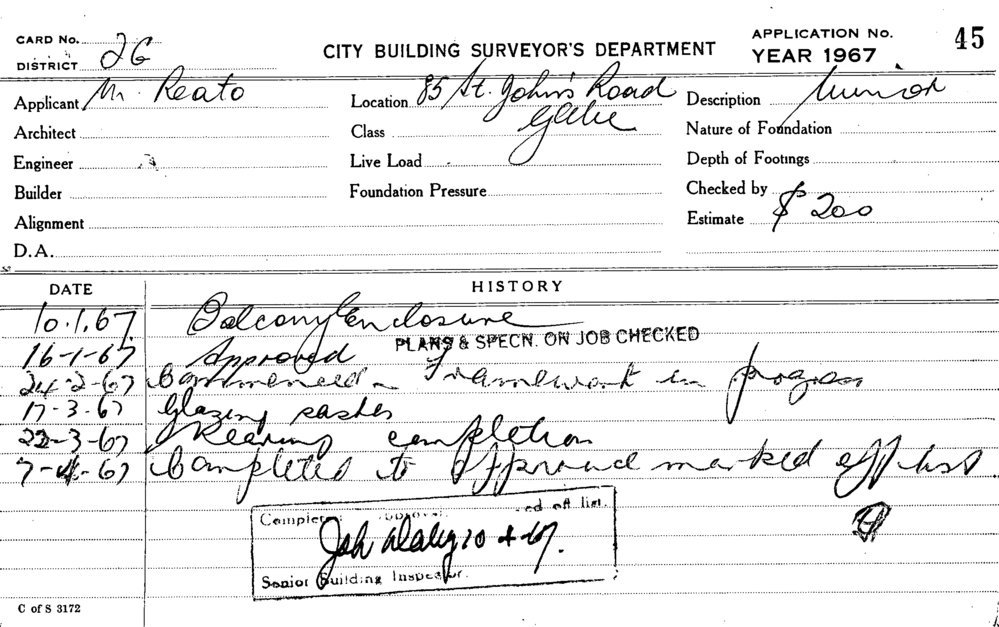 CARD No.
DISTRICT 2G
CITY BUILDING SURVEYOR'S DEPARTMENT
APPLICATION No. 45
YEAR 1967
Applicant Mr. Reato
Location 85 St. John's Road
Glebe
Description Minor
Architect
Class
Nature of Foundation
Engineer
Live Load
Depth of Footings
Builder
Foundation Pressure
Checked by
Alignment
Estimate $200
D.A.
DATE HISTORY
10.1.67 Balcony Enclosure
PLANS & SPECN. ON JOB CHECKED
16-1-67 Approved
24-2-67 Commenced - Framework in progress
17-3-67 Glazing sashes
22-3-67 Nearing completion
7-4-67 Completed to approval marked off list
ed off list.
10 4-67.
Senior Building Inspector.
C of S 3172